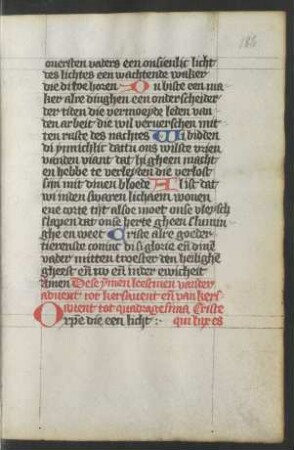 185
ouersten vaders een onsienlic licht
des lichtes een wachtende waker
die di toe horen Du biste een ma
ker alre dinghen een onderscheider
der tiden die vermoeyde leden van
den arbeit die wil veruerschen mit
ten ruste des nachtes Wi bidden
di ynnichlic dattu ons wilste vrien
vanden viant dat hi gheen macht
en hebbe te verleyden die verlost
sijn mit dinen bloede Al ist dat
wi inden swaren lichaem wonen
ene corte tijt alsoe moet onse vleysch
slapen dat onse herte gheen slumin
ghe en weet Criste alre goeder
tierenste coninc di si glorie en dine
vader mitten troester den heilighe
gheest en nu en inder ewicheit
Amen Dese ymen leestmen vander
aduent tot kersauent en van kers
auent tot quadragesima Criste
Cripe die een licht : qui lux es